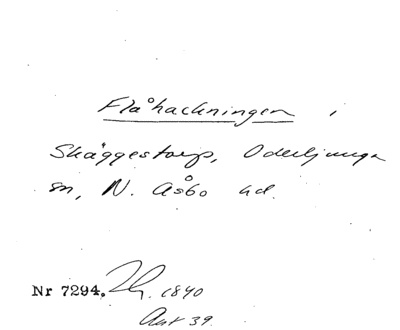 Flåhackningen i
Skäggestorp, Oderljunga
sn, N. Åsbo hd.
Nr 7294. 1840
Ant 39.